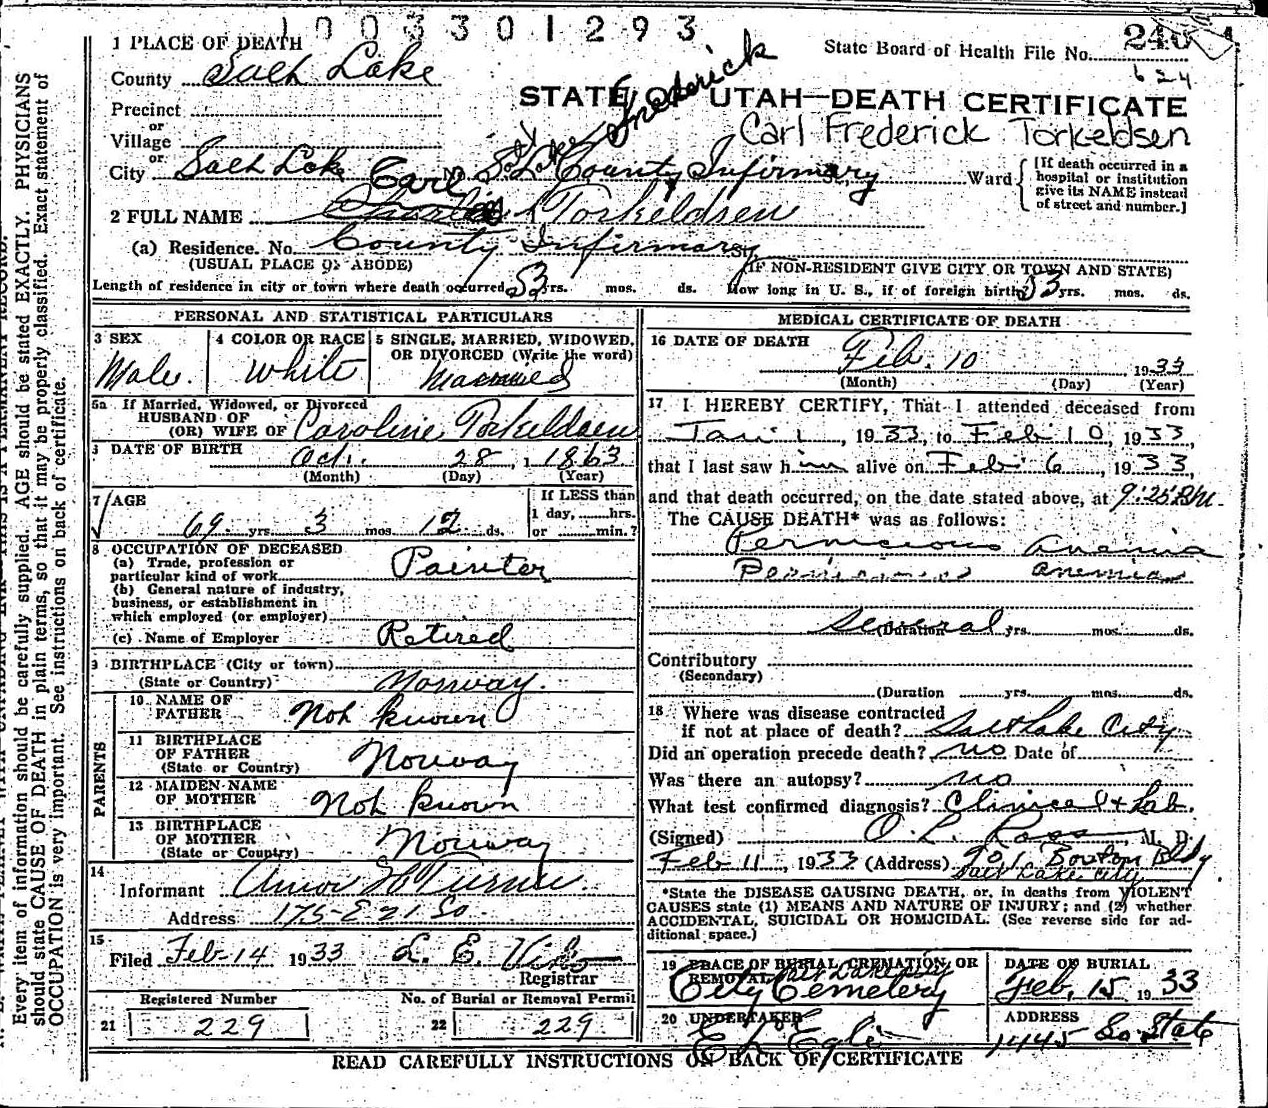 1003301293
1 PLACE OF DEATH
State Board of Health File No.
County Salt Lake
624
STATE OF UTAH—DEATH CERTIFICATE
Frederick
Precinct
or
Village
Carl Frederick Torkeldsen
or
City Salt Lake No. Salt Lake County Infirmary St., Ward
[If death occurred in a
hospital or institution
give its NAME instead
of street and number.]
Carl
2 FULL NAME Torkeldsen
(a) Residence. No. County Infirmary St.
(USUAL PLACE OF ABODE) (IF NON-RESIDENT GIVE CITY OR TOWN AND STATE)
Length of residence in city or town where death occurred 53 yrs. mos. ds. How long in U. S., if of foreign birth? 53 yrs. mos. ds.
PERSONAL AND STATISTICAL PARTICULARS
3 SEX
Male
4 COLOR OR RACE
White
5 SINGLE, MARRIED, WIDOWED,
OR DIVORCED (Write the word)
Married
5a If Married, Widowed, or Divorced
HUSBAND OF
(OR) WIFE OF Caroline Torkeldsen
6 DATE OF BIRTH Oct. 28, 1863
(Month) (Day) (Year)
7 AGE
69 yrs 3 mos 12 ds.
If LESS than
1 day, hrs.
or min.?
8 OCCUPATION OF DECEASED
(a) Trade, profession or
particular kind of work Painter
(b) General nature of industry,
business, or establishment in
which employed (or employer)
(c) Name of Employer Retired
9 BIRTHPLACE (City or town)
(State or Country) Norway.
PARENTS
10 NAME OF
FATHER Not known
11 BIRTHPLACE
OF FATHER
(State or Country) Norway
12 MAIDEN NAME
OF MOTHER Not known
13 BIRTHPLACE
OF MOTHER
(State or Country) Norway
14
Informant Turner
Address 175-E 21 So
15
Filed Feb-14 1933 L. E.
Registrar
Registered Number
21 229
No. of Burial or Removal Permit
22 229
MEDICAL CERTIFICATE OF DEATH
16 DATE OF DEATH
Feb. 10, 1933
(Month) (Day) (Year)
17 I HEREBY CERTIFY, That I attended deceased from
Jan 1, 1933, to Feb 10, 1933,
that I last saw him alive on Feb 6, 1933,
and that death occurred, on the date stated above, at 9:25 P.M.
The CAUSE DEATH* was as follows:
Pernicious Anemia
Pernicious anemia
Several (Duration yrs. mos. ds.
Contributory
(Secondary)
(Duration yrs. mos. ds.
18 Where was disease contracted
if not at place of death? Salt Lake City
Did an operation precede death? no Date of
Was there an autopsy? no
What test confirmed diagnosis? Clinical & Lab.
(Signed) O. L. Ross, M. D.
Feb 11, 1933 (Address) 901 Boston Bldg
Salt Lake City
*State the DISEASE CAUSING DEATH, or, in deaths from VIOLENT
CAUSES state (1) MEANS AND NATURE OF INJURY; and (2) whether
ACCIDENTAL, SUICIDAL OR HOMICIDAL. (See reverse side for ad-
ditional space.)
19 PLACE OF BURIAL, CREMATION, OR
REMOVAL Salt Lake City
City Cemetery
DATE OF BURIAL
Feb, 15 1933
20 UNDERTAKER
ADDRESS
1445 So State
READ CAREFULLY INSTRUCTIONS ON BACK OF CERTIFICATE
Every item of information should be carefully supplied. AGE should be stated EXACTLY. PHYSICIANS
should state CAUSE OF DEATH in plain terms, so that it may be properly classified. Exact statement of
OCCUPATION is very important. See instructions on back of certificate.